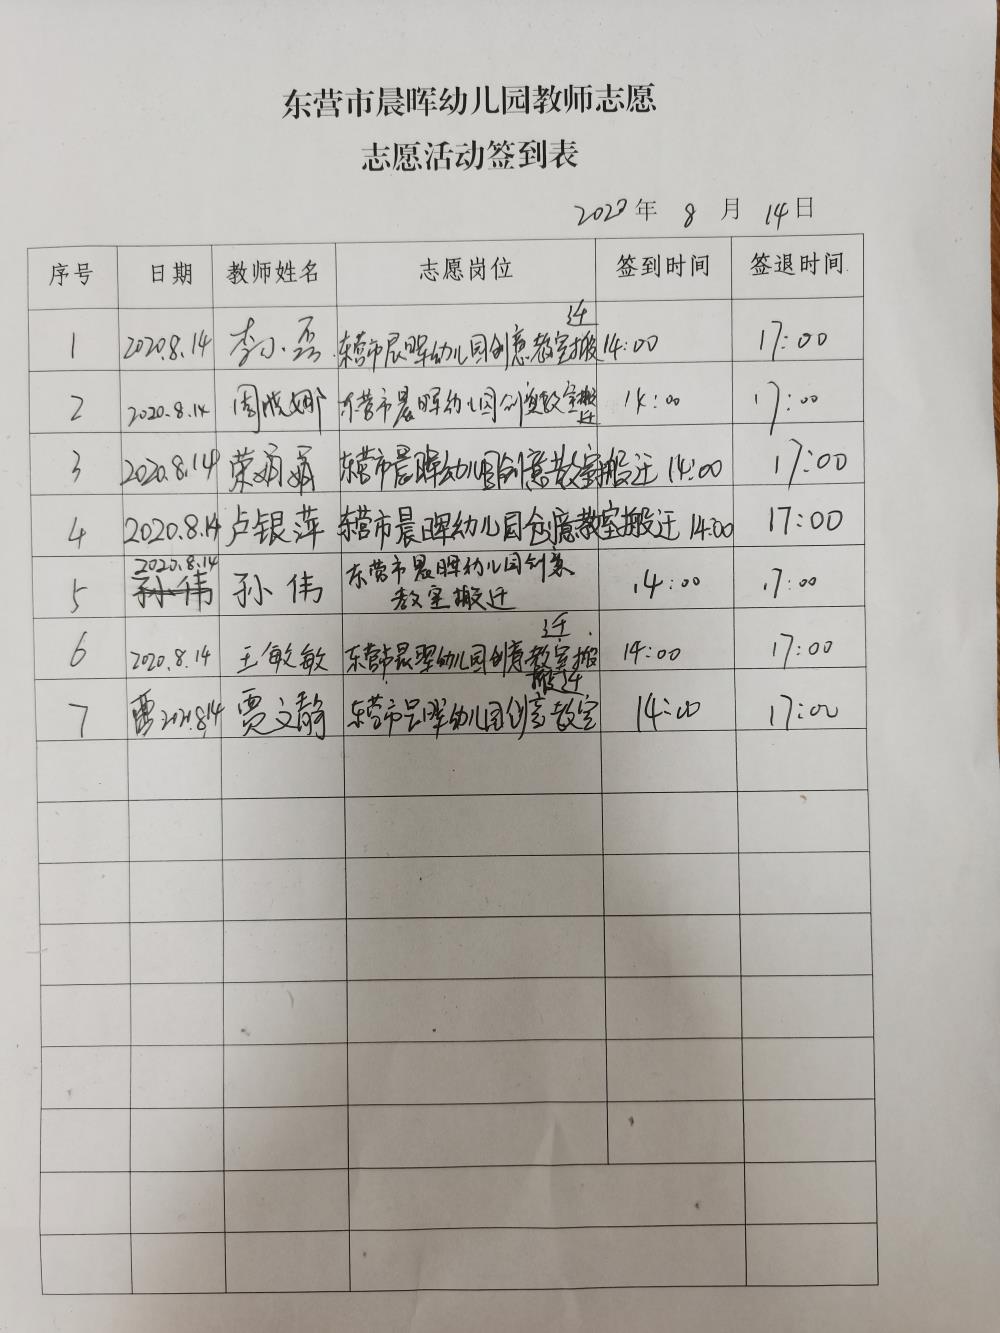 东营市晨晖幼儿园教师志愿
志愿活动签到表
2020年 8 月 14日
序号 日期 教师姓名 志愿岗位 签到时间 签退时间
1 2020.8.14 李小磊 东营市晨晖幼儿园创意教室搬迁 14:00 17:00
2 2020.8.14 周晓娜 东营市晨晖幼儿园创意教室搬迁 14:00 17:00
3 2020.8.14 荣娟娟 东营市晨晖幼儿园创意教室搬迁 14:00 17:00
4 2020.8.14 卢银萍 东营市晨晖幼儿园创意教室搬迁 14:00 17:00
5 2020.8.14 孙伟 孙伟 东营市晨晖幼儿园创意
教室搬迁 14:00 17:00
6 2020.8.14 王敏敏 东营市晨晖幼儿园创意教室搬迁 14:00 17:00
7 2020.8.14 贾文静 东营市晨晖幼儿园创意教室搬迁 14:00 17:00